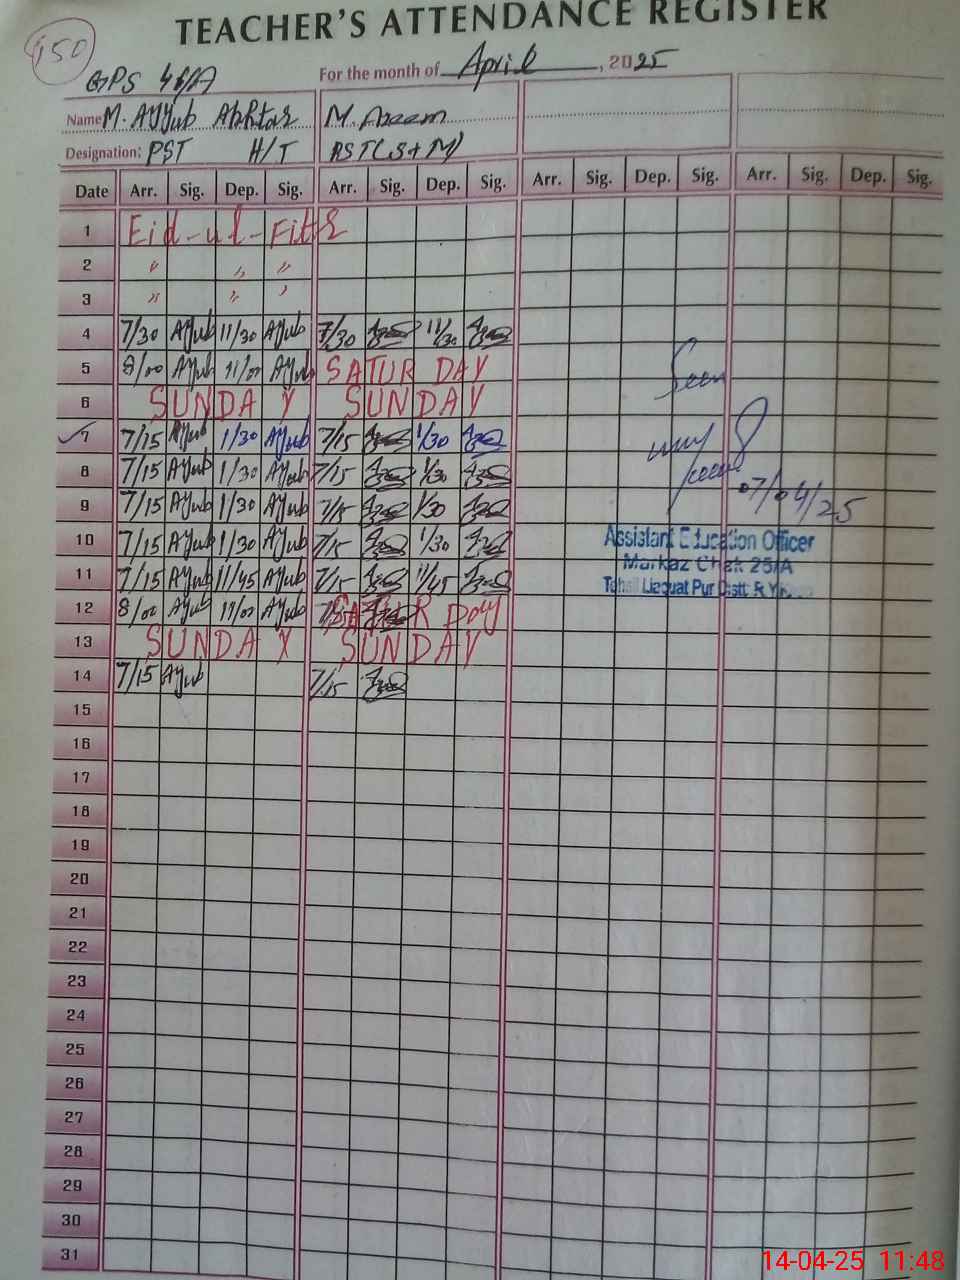 TEACHER'S ATTENDANCE REGISTER
150
GPS 46/A For the month of April, 2025
Name M. Ayyub Akhtar M. Azeem
Designation: PST H/T
Date Arr. Sig. Dep. Sig. Arr. Sig. Dep. Sig. Arr. Sig. Dep. Sig. Arr. Sig. Dep. Sig.
1 Eid-ul-Fitr
2 " " "
3 " " "
4 7/30 Ayub 11/30 Ayub 7/30 11/30
5 8/00 Ayub 11/00 Ayub SATUR DAY
6 SUNDAY SUNDAY
7 7/15 Ayub 1/30 Ayub 7/15 1/30
8 7/15 Ayub 1/30 Ayub 7/15 1/30
9 7/15 Ayub 1/30 Ayub 7/15 1/30
10 7/15 Ayub 1/30 Ayub 7/15 1/30
11 7/15 Ayub 11/45 Ayub 7/15 11/45
12 8/00 Ayub 11/00 Ayub SATUR Day
13 SUNDAY SUNDAY
14 7/15 Ayub 7/15
15
16
17
18
19
20
21
22
23
24
25
26
27
28
29
30
31
Seen
07/04/25
Assistant Education Officer
Markaz Chak 25/A
Tehsil Liaquat Pur Distt: R.Y.
14-04-25 11:48